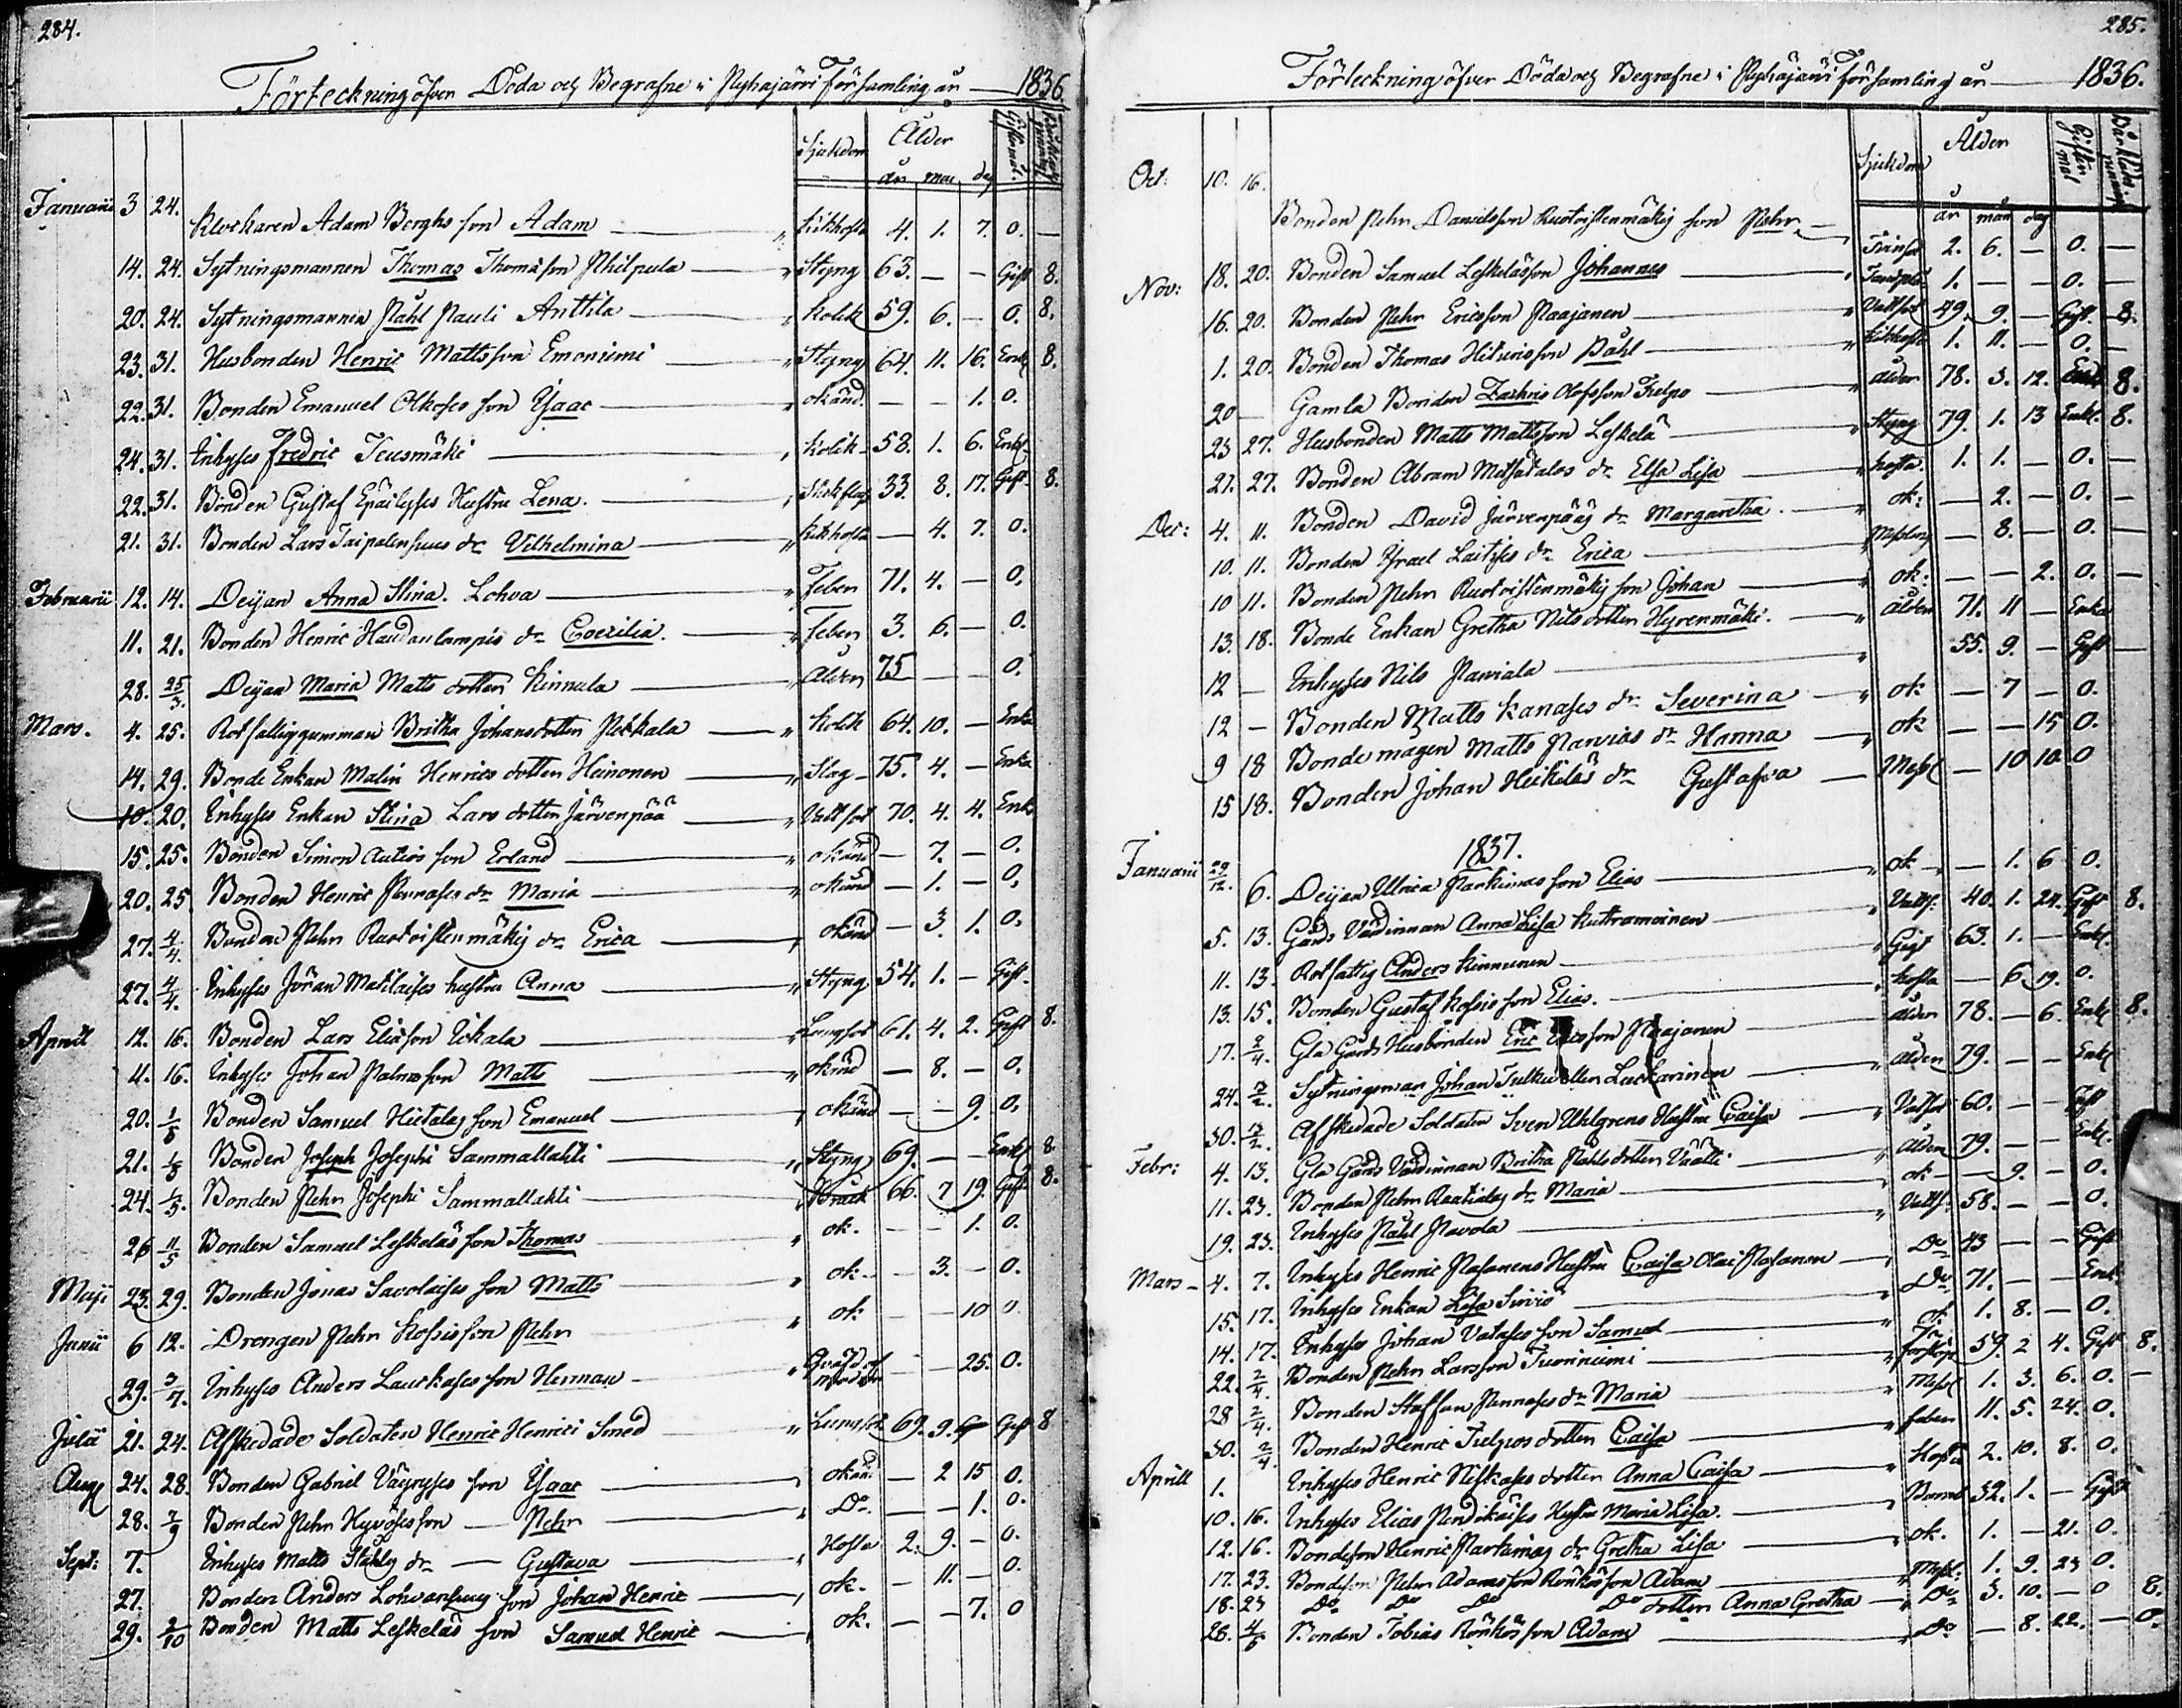 284.
Förteckning öfver Döda och Begrafne i Pyhajärvi Församling år 1836.
Sjukdom Ålder Giftermål.
år mån dag
Januarii 3 24. Klockaren Adam Berghs son Adam " kikhosta 4. 1. 7. 0. —
14. 24. Sytningsmannen Thomas Thomasson Philpula " Styng 63. — — Gift 8.
20. 24. Sytningsmannen Påhl Pauli Anttila " Kolik 59. 6. — 0. 8.
23. 31. Husbonden Henric Mattsson Emoniemi " Styng 64. 11. 16. Enkl 8.
22. 31. Bonden Emanuel Olkoses son Ysaac " okänd — — 1. 0.
24. 31. Inhyses Fredric Teusmäki " Kolik 58. 1. 6. Enkl.
22. 31. Bonden Gustaf Epäilyses Hustru Lena. " 33. 8. 17. Gift. 8.
21. 31. Bonden Lars Taipalensuus dr Vilhelmina " kikhosta — 4. 7. 0.
Februarii 12. 14. Deijan Anna Stina. Lohva " Feber 71. 4. — 0.
11. 21. Bonden Henric Haudanlampis dr Coecilia. " Feber 3. 6. — 0.
28. 25/3. Deijan Maria Matts dotter Kinnula " Ålder 75 — — 0.
Mars. 4. 25. Rotfattiggumman Britha Johansdotter Pekkala " Kolik 64. 10. — Enka
14. 29. Bonde Enkan Malin Henrics dotter Heinonen " Slag 75. 4. — Enka
10. 20. Inhyses Enkan Stina Lars dotter Järvenpää " Vattsot 70. 4. 4. Enk
15. 25. Bonden Simon Autios son Erland " okänd — 7. — 0.
20. 25. Bonden Henric Pennases dr Maria " okänd — 1. — 0.
27. 4/4. Bonden Pehr Ruotoistenmäkis dr Erica " okänd — 3. 1. 0.
27. 4/4. Inhyses Jöran Matilaises hustru Anna " Styng 54. 1. — Gift.
April 12. 16. Bonden Lars Eliasson Tikala " Lungsot 61. 4. 2. Gift 8.
4. 16. Inhyses Johan Palmsson Matts " okänd — 8. — 0.
20. 1/5 Bonden Samuel Hietalas son Emanuel " okänd — — 9. 0.
21. 1/5 Bonden Joseph Josephi Sammallahti " Styng 69. — — Enkl 8.
24. 1/5. Bonden Pehr Josephi Sammallahti " Bråck 66. 7 19. Gift. 8.
26 11/5 Bonden Samuel Leskeläs son Thomas " ok. — — 1. 0.
Maji 23. 29. Bonden Jonas Savolaises son Matts " ok. — 3. — 0.
Junii 6 12. Drengen Pehr Kossis son Pehr " ok — — 10 0.
29. 3/7. Inhyses Anders Laukkases son Herman " Qväfd af modren — — 25. 0.
Julii 21. 24. Afskedade Soldaten Henric Henrici Smed " Lungsot 69. 9. Gift 8
Aug 24. 28. Bonden Gabriel Väyryses son Ysaac " okänd — 2 15 0.
28. 7/9 Bonden Pehr Hyvöses son — Pehr " Do. — — 1. 0.
Sept: 7. Inhyses Matts Ståhls dr — Gustava " Hosta 2. 9. — 0.
27. Bonden Anders Lohvansuus son Johan Henric " ok. — 11. — 0.
29. 2/10 Bonden Matts Leskeläs son Samuel Henric " ok. — — 7. 0
285.
Förteckning öfver Döda och Begrafne i Pyhäjärvi Församling år 1836.
Sjukdom Ålder Gifter mål
år mån dag
Oct: 10. 16. Bonden Pehr Danielsson Ruotoistenmäkis son Pehr " Tvinsot 2. 6. — 0. —
18. 20. Bonden Samuel Leskelässon Johannes " 1. — — 0. —
Nov: 16. 20. Bonden Pehr Ericsson Paajanen " Vattsot 49. 9. — Gift. 8.
1. 20. Bonden Thomas Hiturisson Påhl " kikhosta 1. 11. — 0. —
20 — Gamla Bonden Zachris Olofsson Tielpo " ålder 78. 3. 12. Enkl 8.
23 27. Husbonden Matts Mattsson Leskelä " Styng 79. 1. 13 Enkl. 8.
27. 27. Bonden Abram Metsätalos dr Elsa Lisa " hosta. 1. 1. — 0. —
Dec: 4. 11. Bonden David Järvenpääs dr Margaretha. " ok: — 2. — 0. —
10. 11. Bonden Israel Laitises dr Erica " Messling — 8. — 0. —
10 11. Bonden Pehr Ruotoistenmäkis son Johan " ok: — — 2. 0. —
13. 18. Bonde Enkan Gretha Nils dotter Hyrenmäki. " ålder 71. 11 — Enka
12 — Inhyses Nils Parviala " 55. 9. — Gift —
12 — Bonden Matts Kanases dr Severina " ok — 7 — 0.
9 18 Bonde magen Matts Parvias dr Hanna — ok — — 15 0.
15 18. Bonden Johan Heikiläs dr Gustafva — Messl — 10 10. 0
1837.
Januarii 29/12. 6. Deijan Ulrica Parkimas son Elias " ok — — 1. 6 0.
5. 13. Gårds Värdinnan Anna Lisa Kuttramoinen " Vatts. 40. 1. 24. Gift 8.
11. 13. Rotfattig Anders Kinnunen " Gigt 63. 1. — Enkl.
13. 15. Bonden Gustaf Kossis son Elias. " Hosta — 6 19. 0.
17. 2/4. Gla Gårds Husbonden Eric Ericsson Paajanen " ålder 78. — 6. Enkl 8.
24. 2/2. Sytningsman Johan Tulku eller Luckarinen " ålder 79. — — Enkl
30. 2/2. Afskedade Soldaten Sven Uhlgrens Hustru Caisa " Vatsot 60. — — Gift
Febr: 4. 13. Gla Gårds Värdinnan Britha Påhls dotter Väätti " ålder 79. — — Enkl.
11. 23. Bonden Pehr Raatialas dr Maria " ok — 9. — 0.
19. 23. Inhyses Påhl Pavola " Vatts. 58. — — 0.
Mars - 4. 7. Inhyses Henric Pasanens Hustru Caisa Olai Pasanen " Do 43 — — Gift
15. 17. Inhyses Enkan Lisa Sirviö " Do 71. — — Enk.
14. 17. Inhyses Johan Vatases son Samuel " ok 1. 8. — 0.
22. 2/4. Bonden Pehr Larsson Tuoriniemi " 59. 2 4. Gift 8.
28 2/4. Bonden Staffan Pennases dr Maria " Messl 1. 3. 6. 0. —
30. 2/4. Bonden Henric Tielpos dotter Caisa " feber 11. 5. 24. 0.
Aprill 1. Inhyses Henric Niskases dotter Anna Caisa " Hosta 2. 10. 8. 0.
10. 16. Inhyses Elias Pendikäises Hustru Maria Lisa. " Barnsl 32. 1. — Gift
12. 16. Bondeson Henric Parkimas dr Gretha Lisa " ok. 1. — 21. 0.
17. 23. Bondeson Pehr Adamsson Rönkös son Adam " Messl. 1. 9. 23 0.
18. 23 Do Do Do Do dotter Anna Gretha " Do 3. 10. — 0 8.
28. 4/5 Bonden Tobias Rönkös son Adam " Do — 8. 22. — 0.